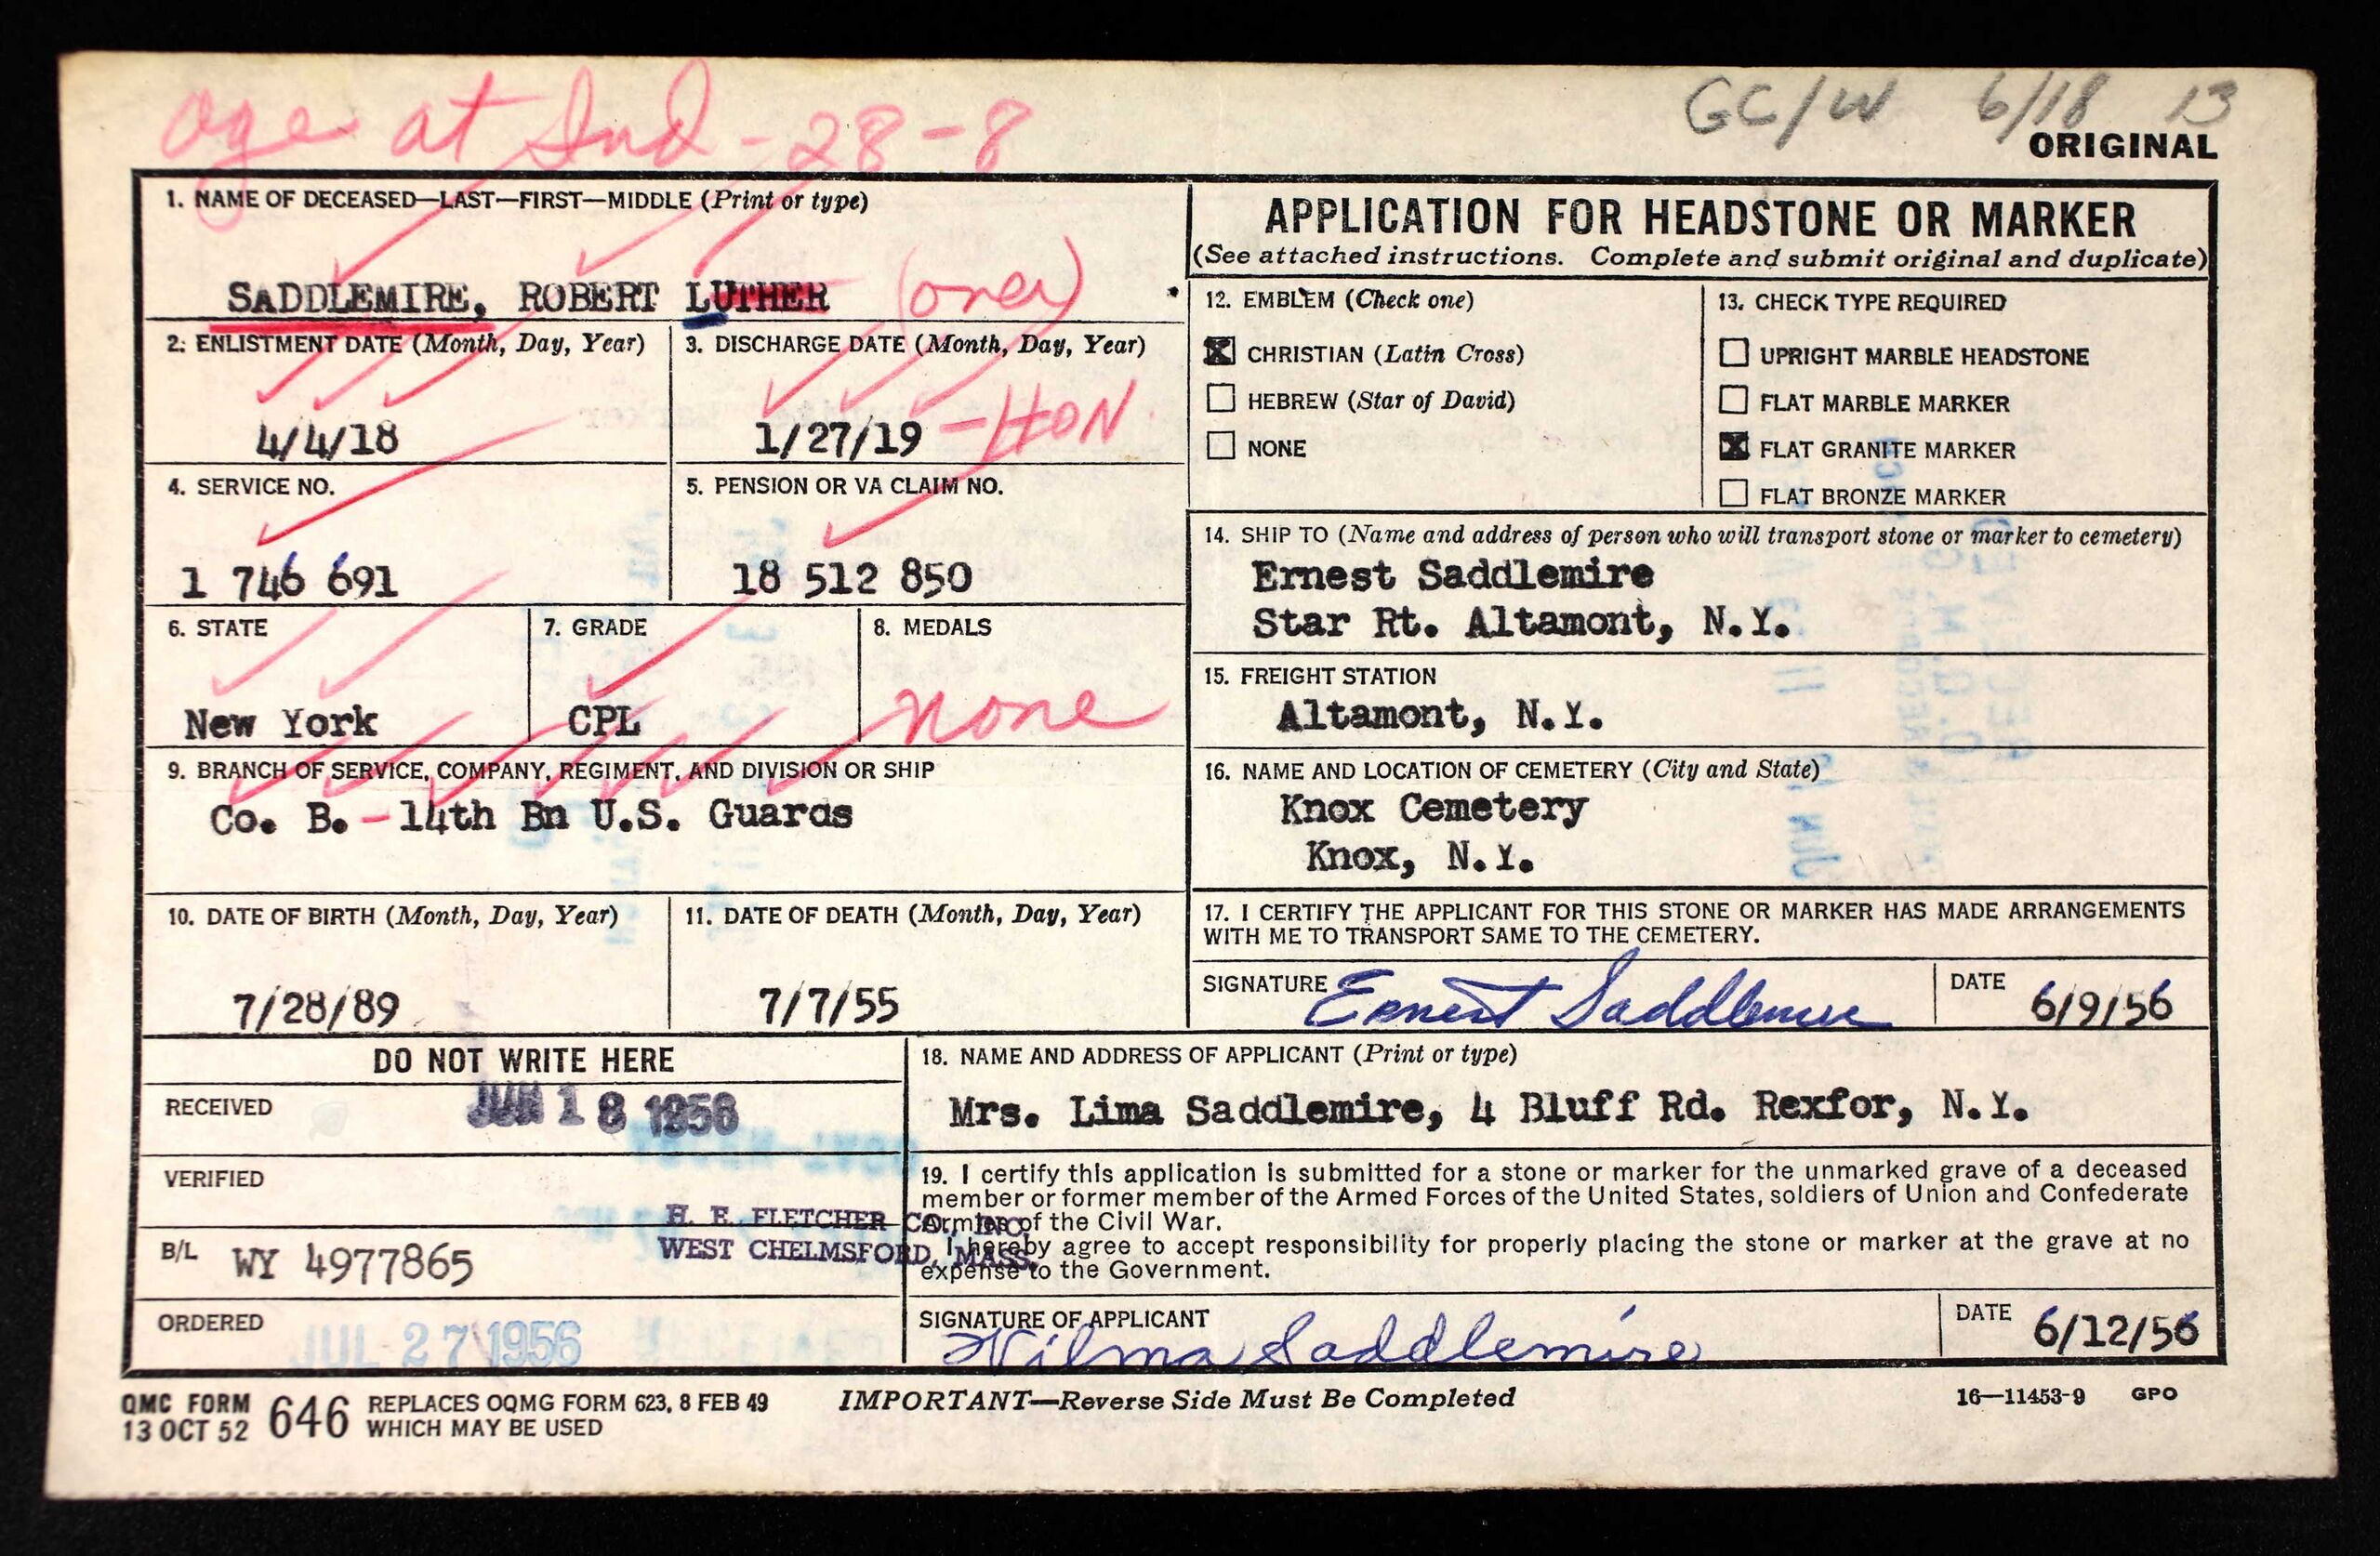 age at Ind - 28-8
GC/W 6/18 13
ORIGINAL
1. NAME OF DECEASED—LAST—FIRST—MIDDLE (Print or type)
SADDLEMIRE, ROBERT LUTHER (over)
2. ENLISTMENT DATE (Month, Day, Year)
4/4/18
3. DISCHARGE DATE (Month, Day, Year)
1/27/19 - HON
4. SERVICE NO.
1 746 691
5. PENSION OR VA CLAIM NO.
18 512 850
6. STATE
New York
7. GRADE
CPL
8. MEDALS
none
9. BRANCH OF SERVICE, COMPANY, REGIMENT, AND DIVISION OR SHIP
Co. B. - 14th Bn U.S. Guards
10. DATE OF BIRTH (Month, Day, Year)
7/28/89
11. DATE OF DEATH (Month, Day, Year)
7/7/55
APPLICATION FOR HEADSTONE OR MARKER
(See attached instructions. Complete and submit original and duplicate)
12. EMBLEM (Check one)
CHRISTIAN (Latin Cross)
HEBREW (Star of David)
NONE
13. CHECK TYPE REQUIRED
UPRIGHT MARBLE HEADSTONE
FLAT MARBLE MARKER
FLAT GRANITE MARKER
FLAT BRONZE MARKER
14. SHIP TO (Name and address of person who will transport stone or marker to cemetery)
Ernest Saddlemire
Star Rt. Altamont, N.Y.
15. FREIGHT STATION
Altamont, N.Y.
16. NAME AND LOCATION OF CEMETERY (City and State)
Knox Cemetery
Knox, N.Y.
17. I CERTIFY THE APPLICANT FOR THIS STONE OR MARKER HAS MADE ARRANGEMENTS
WITH ME TO TRANSPORT SAME TO THE CEMETERY.
SIGNATURE Ernest Saddlemire
DATE 6/9/56
DO NOT WRITE HERE
RECEIVED JUN 18 1956
VERIFIED
H. E. FLETCHER CO., INC.
WEST CHELMSFORD, MASS.
B/L WY 4977865
ORDERED JUL 27 1956
18. NAME AND ADDRESS OF APPLICANT (Print or type)
Mrs. Lima Saddlemire, 4 Bluff Rd. Rexfor, N.Y.
19. I certify this application is submitted for a stone or marker for the unmarked grave of a deceased
member or former member of the Armed Forces of the United States, soldiers of Union and Confederate
Armies of the Civil War.
I hereby agree to accept responsibility for properly placing the stone or marker at the grave at no
expense to the Government.
SIGNATURE OF APPLICANT
Wilma Saddlemire
DATE 6/12/56
QMC FORM
13 OCT 52 646
REPLACES OQMG FORM 623, 8 FEB 49
WHICH MAY BE USED
IMPORTANT—Reverse Side Must Be Completed
16—11453-9 GPO